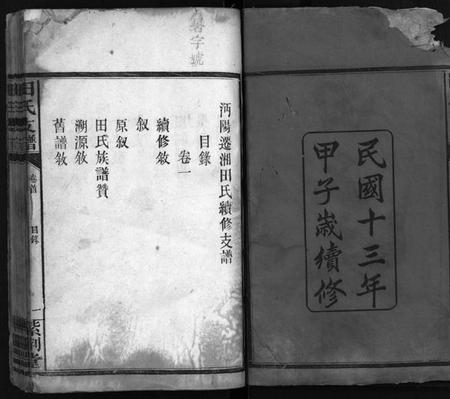 民國十三年
甲子歲續修
字號
沔陽遷湘田氏續修支譜
目錄
卷一
續修敘
敘
原叙
田氏族譜贊
溯源敘
舊譜敘
田氏支譜
卷首
目錄
一
紫荊堂